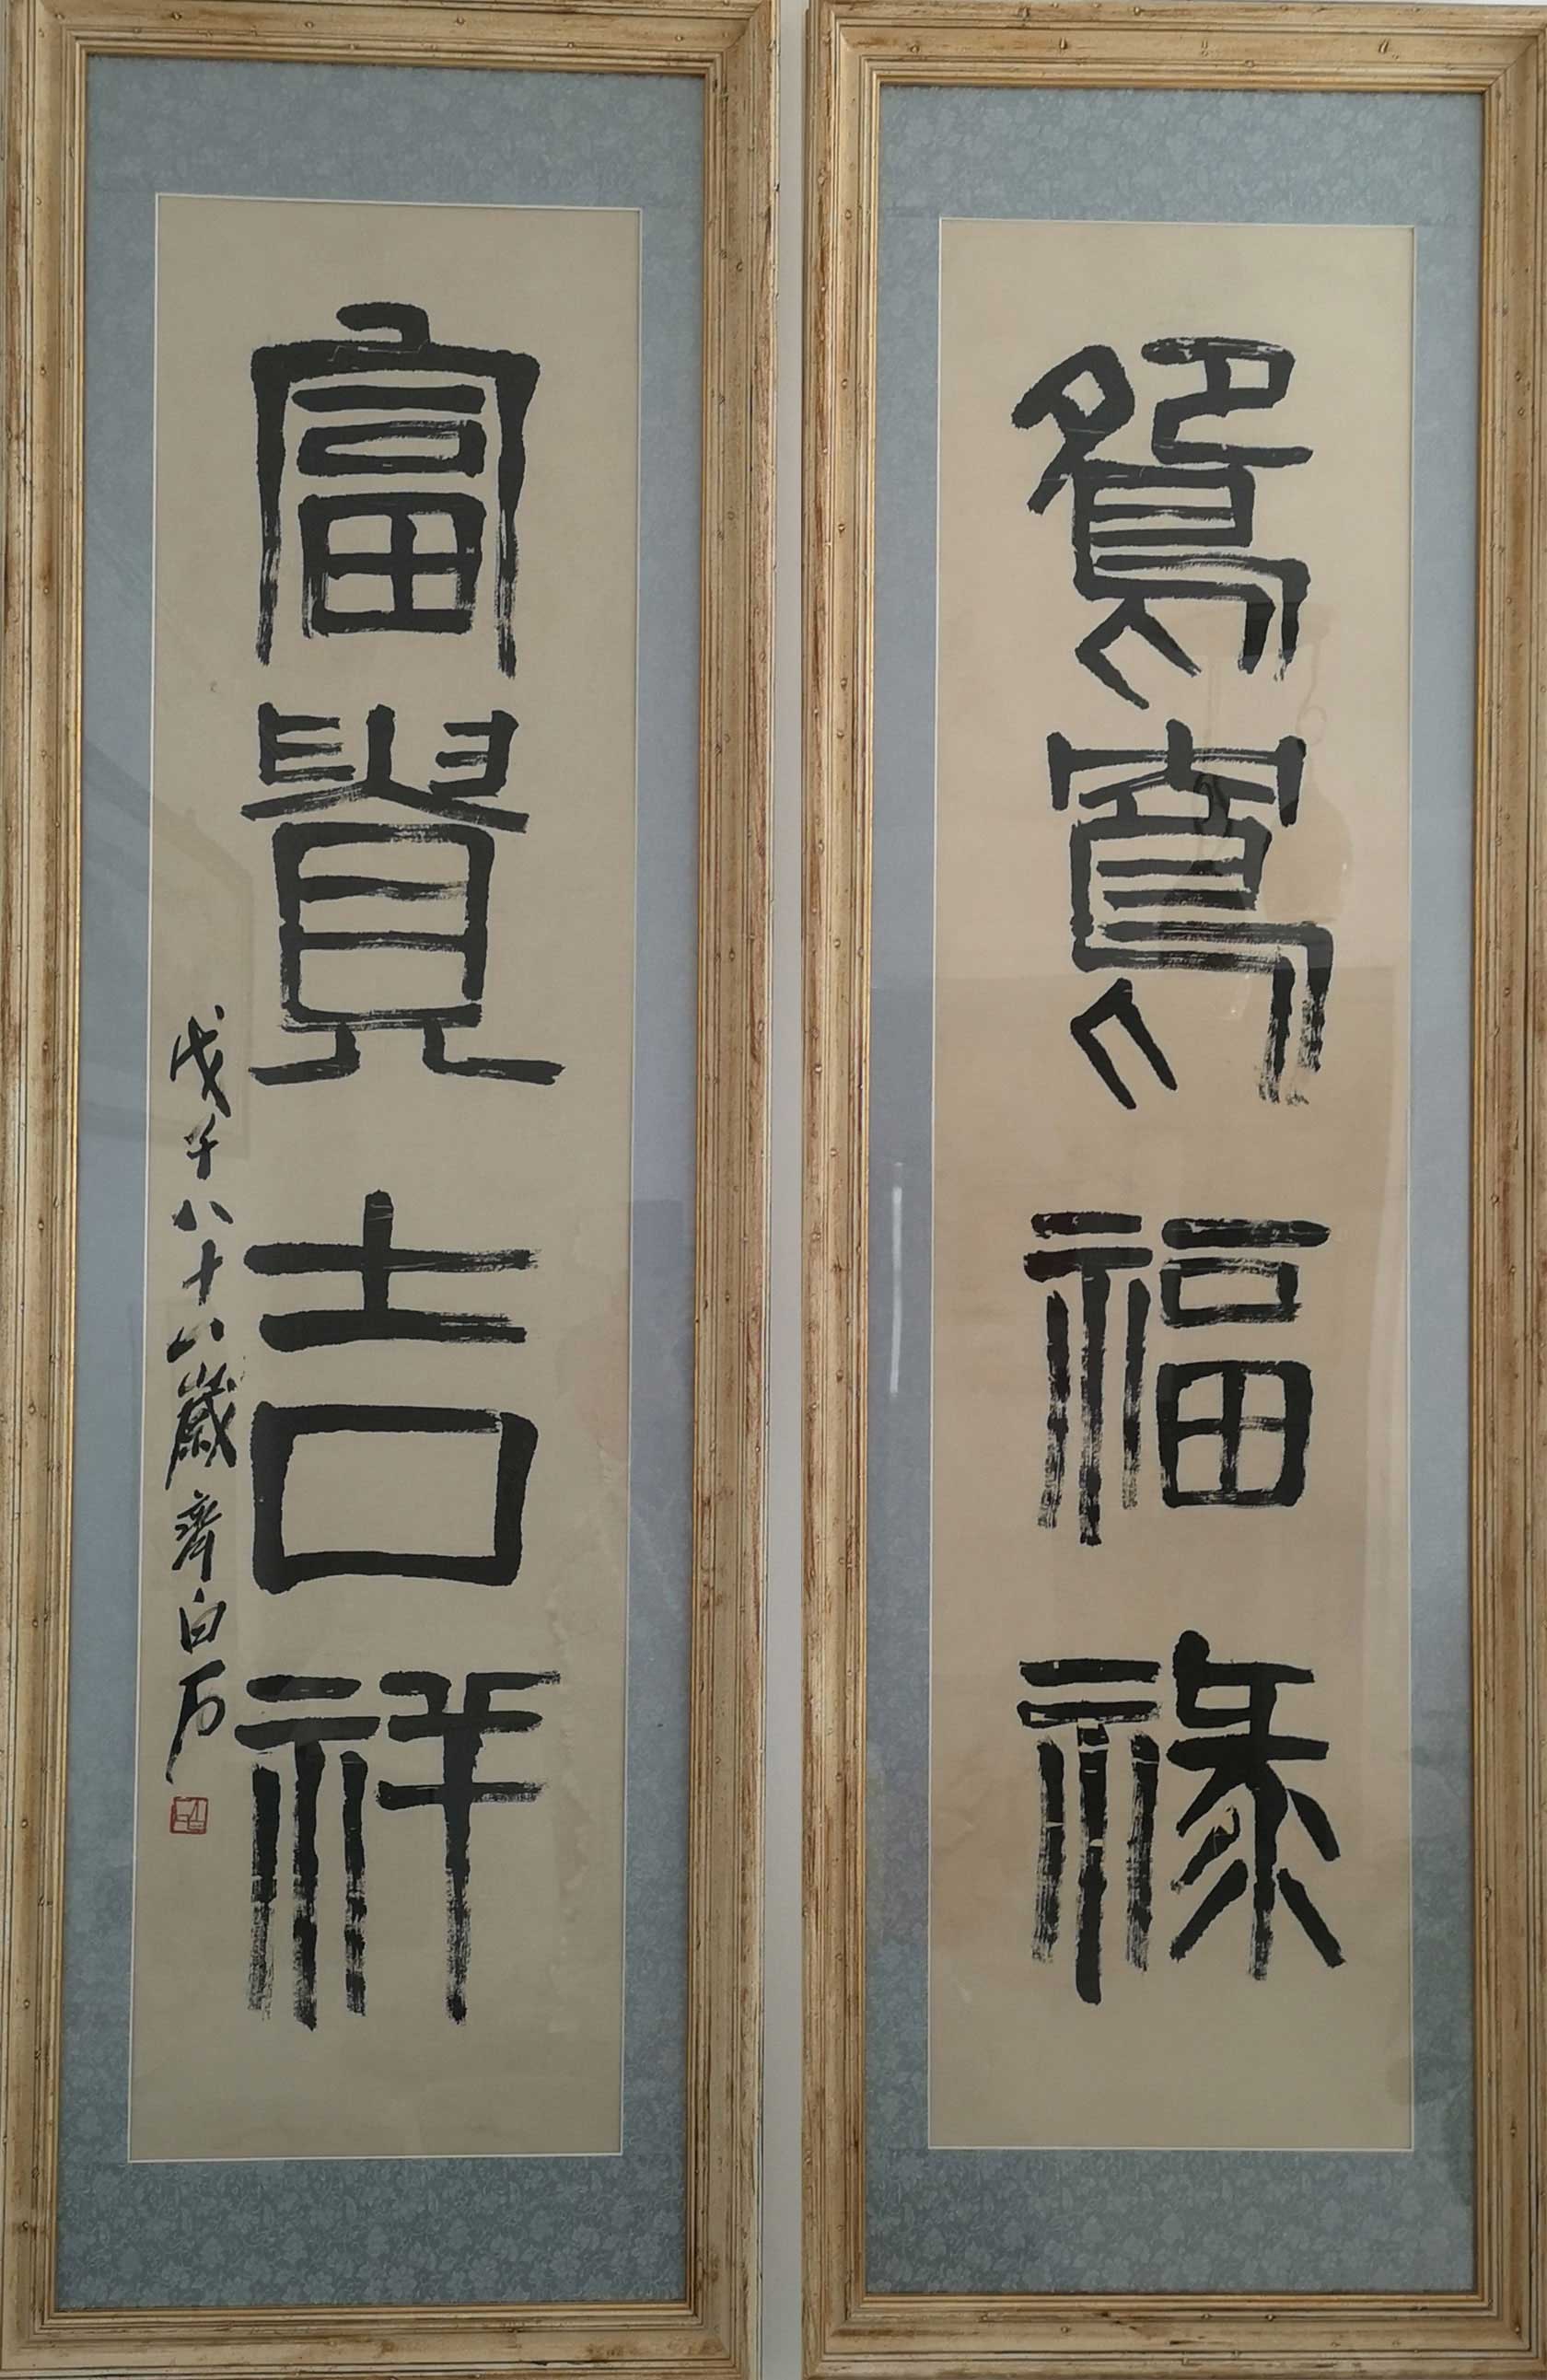 鴛鴦福祿
富貴吉祥
戊子八十八歲齊白石